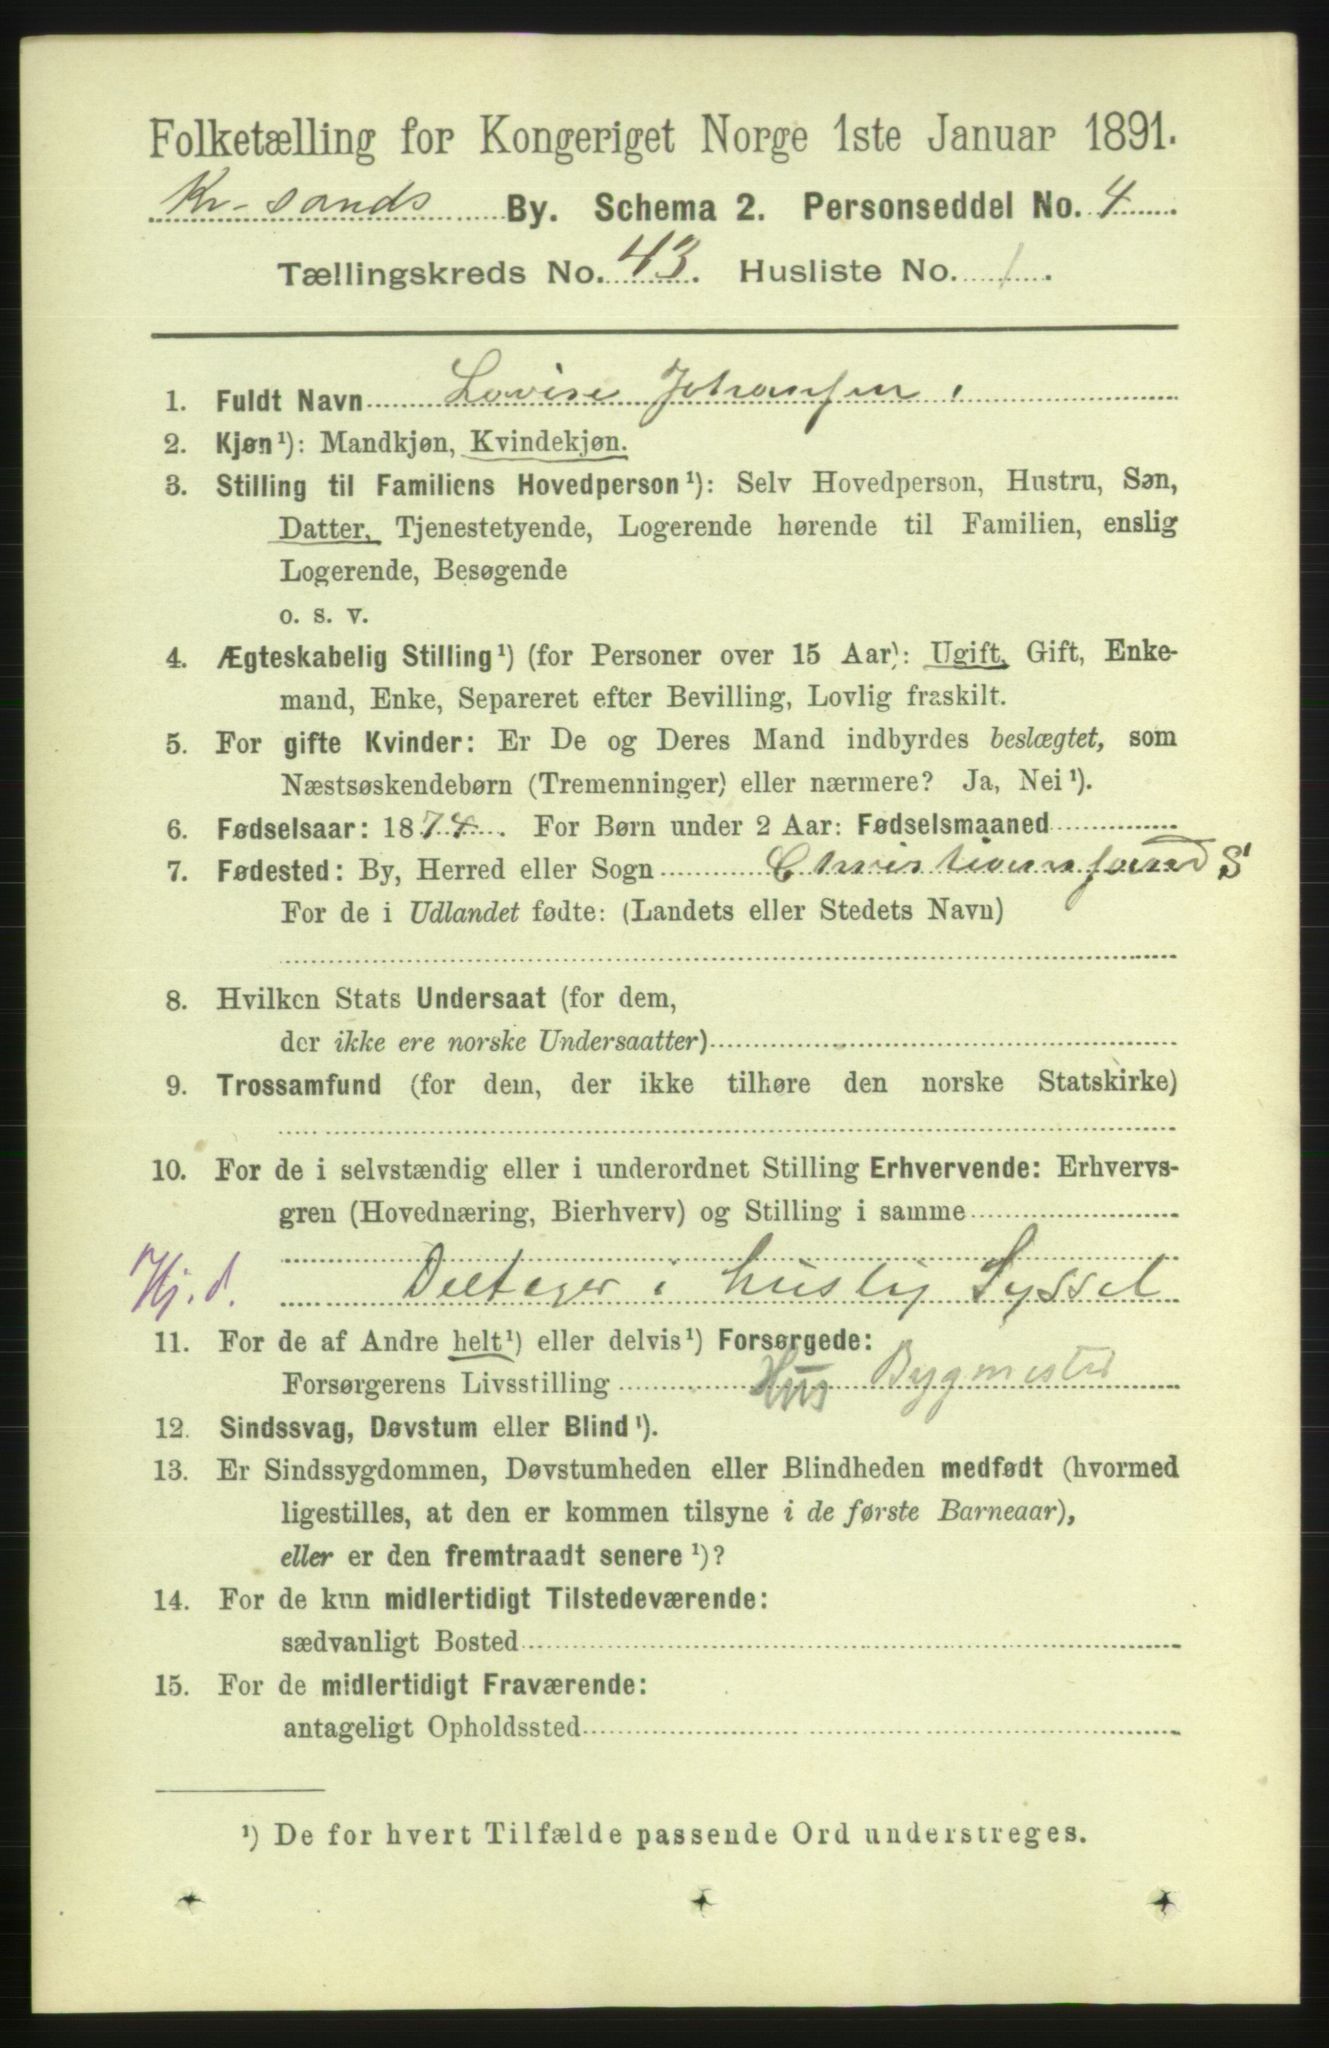 Folketælling for Kongeriget Norge 1ste Januar 1891.
Kr-sands By. Schema 2. Personseddel No. 4
Tællingskreds No. 43. Husliste No. 1.
1. Fuldt Navn Lovise Johansen,
2. Kjøn¹): Mandkjøn, Kvindekjøn.
3. Stilling til Familiens Hovedperson¹): Selv Hovedperson, Hustru, Søn,
Datter, Tjenestetyende, Logerende hørende til Familien, enslig
Logerende, Besøgende
o. s. v.
4. Ægteskabelig Stilling¹) (for Personer over 15 Aar): Ugift, Gift, Enke-
mand, Enke, Separeret efter Bevilling, Lovlig fraskilt.
5. For gifte Kvinder: Er De og Deres Mand indbyrdes beslægtet, som
Næstsøskendebørn (Tremenninger) eller nærmere? Ja, Nei¹).
6. Fødselsaar: 1874. For Børn under 2 Aar: Fødselsmaaned
7. Fødested: By, Herred eller Sogn Christiansand S
For de i Udlandet fødte: (Landets eller Stedets Navn)
8. Hvilken Stats Undersaat (for dem,
der ikke ere norske Undersaatter)
9. Trossamfund (for dem, der ikke tilhøre den norske Statskirke)
10. For de i selvstændig eller i underordnet Stilling Erhvervende: Erhvervs-
gren (Hovednæring, Bierhverv) og Stilling i samme
Hj. d. Deltager i huslig Syssel
11. For de af Andre helt¹) eller delvis¹) Forsørgede:
Forsørgerens Livsstilling Hus Bygmester
12. Sindssvag, Døvstum eller Blind¹).
13. Er Sindssygdommen, Døvstumheden eller Blindheden medfødt (hvormed
ligestilles, at den er kommen tilsyne i de første Barneaar),
eller er den fremtraadt senere¹)?
14. For de kun midlertidigt Tilstedeværende:
sædvanligt Bosted
15. For de midlertidigt Fraværende:
antageligt Opholdssted
¹) De for hvert Tilfælde passende Ord understreges.